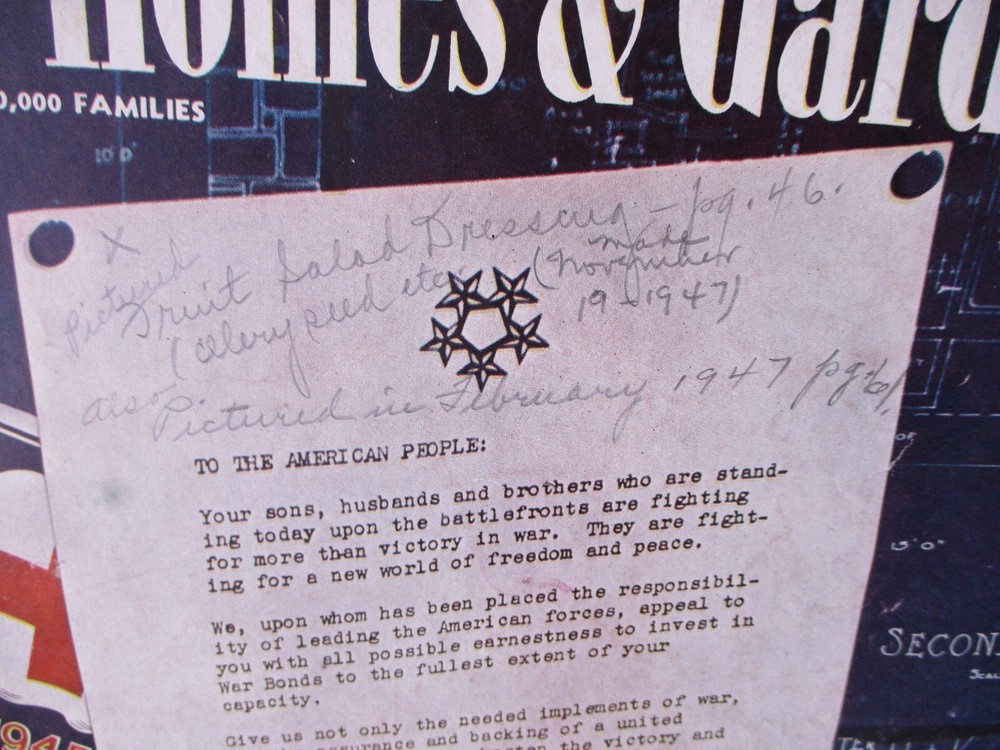 Homes & Gard
0,000 FAMILIES
10' 0"
X
pictured
Fruit Salad Dressing - pg. 46.
(Celery seed etc.
(made
November
19 - 1947)
also Pictured in February 1947 pg. 61.
TO THE AMERICAN PEOPLE:
Your sons, husbands and brothers who are stand-
ing today upon the battlefronts are fighting
for more than victory in war. They are fight-
ing for a new world of freedom and peace.
We, upon whom has been placed the responsibil-
ity of leading the American forces, appeal to
you with all possible earnestness to invest in
War Bonds to the fullest extent of your
capacity.
Give us not only the needed implements of war,
assurance and backing of a united
the victory and
OF
15'-0"
SECON
SCAL
194